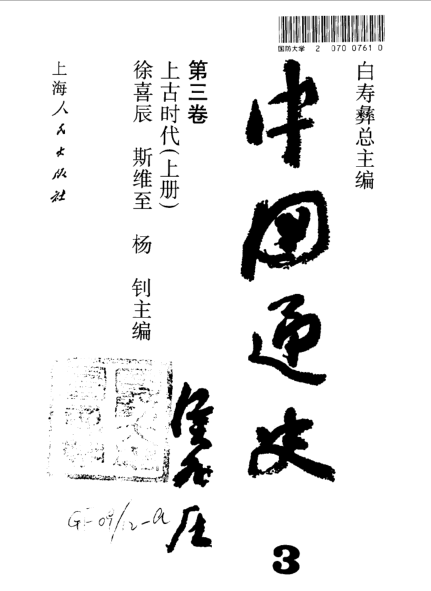 国防大学 2 070 0761 0
白寿彝总主编
中国通史
3
第三卷
上古时代(上册)
徐喜辰 斯维至 杨 钊主编
上海人民出版社